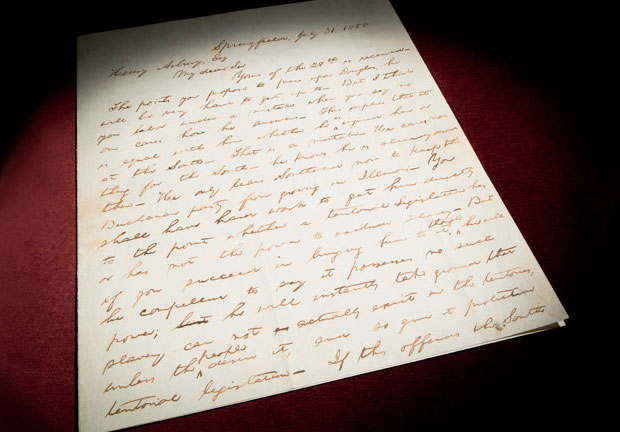 Springfield, July 31, 1858
Henry Asbury, Esq
My dear Sir
Yours of the 28th is received.
The points you propose to press upon Douglas, he
will be very hard to get up to. But I think
you labor under a mistake when you say no
one cares how he answers. This implies that it
is equal with him whether he is injured here or
at the South. That is a mistake. He cares no-
thing for the South- he knows he is already dead
there. He only leans Southward now to keep the
Buchanan party from growing in Illinois. You
shall have hard work to get him directly
to the point whether a territorial Legislature has
or has not the power to exclude slavery. But
if you succeed in bringing him to it, though he will
be compelled to say it possesses no such
power; but he will instantly take ground that
slavery can not actually exist in the territories,
unless the people desire it, and so give it protective
territorial legislation. If this offends the South